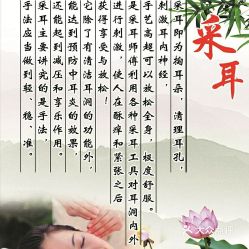 采耳
采耳即为掏耳朵，清理耳孔，
刺激耳内神经，
手艺高超可以放松全身，极度舒服。
是采耳师傅利用各种采耳工具对耳洞内外
进行刺激，使人在酥痒和紧张之后
获得享受与放松！
它除了有清洁耳洞的功能外，
还能达到预防中耳炎的效果，
还能起到减压和享乐作用。
采耳主要讲究的是手法，
手法应当做到轻、稳、准。
大众点评